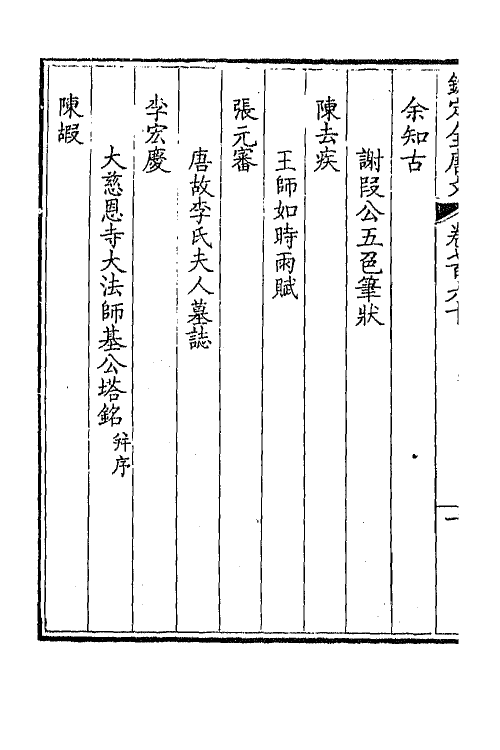 欽定全唐文 卷七百六十 一
余知古
謝段公五色筆狀
陳去疾
王師如時雨賦
張元審
唐故李氏夫人墓誌
李宏慶
大慈恩寺大法師基公塔銘 幷序
陳嘏